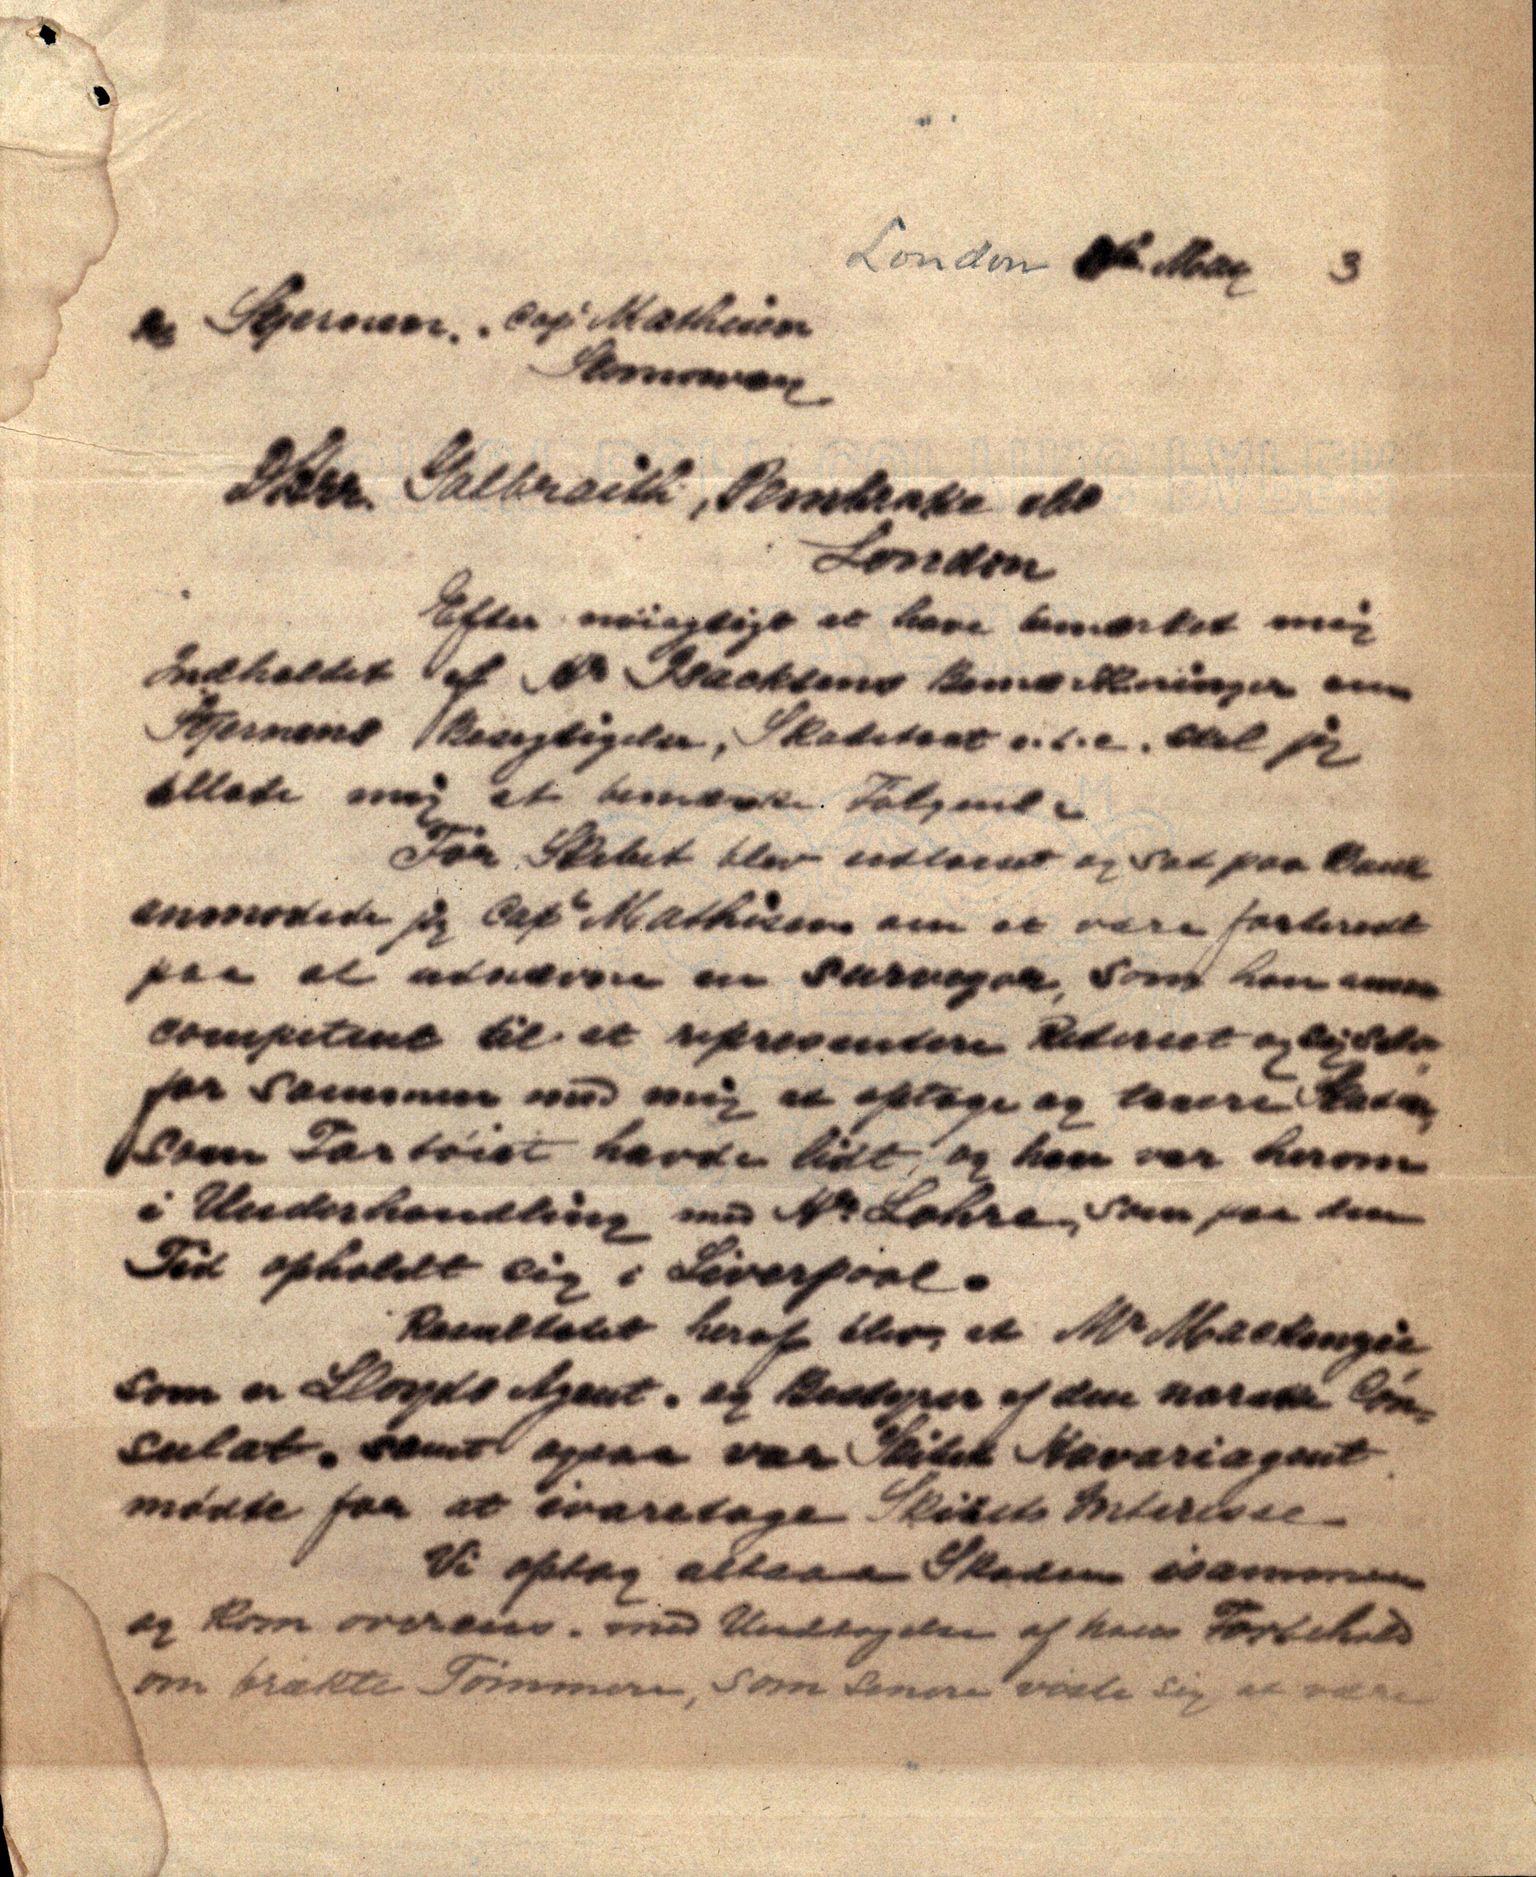 London May 3
Re Stjernen. Capt Mathisen
Stornoway
DHrr. Galbraith, Pembroke &Co
London
Efter nöiagtigt at have bemærket mig
Indholdet af Mr Isacksens Bemærkninger om
Stjernens Besigtigelse, Skadetaxt o.s.v. skal jeg
tillade mig at bemærke Følgende
Før Skibet blev udlosset og sat paa Bank
anmodede jeg Capt Mathisen om at være forberedt
paa at udnævne en surveyor, som han ansaa
competent til at repræsentere Rederiet og sig selv
for sammen med mig at optage og taxere Skaden,
som Fartöiet havde lidt, og han var herom
i Underhandling med Mr. Lohre, som paa den
Tid opholdt sig i Liverpool.
Resultatet heraf blev, at Mr Mackenzie
som er Lloyds Agent. og Bestyrer af den norske Con-
sulat. samt ogsaa var Skibets Havariagent
mødte for at ivaretage Skibets Interesse
Vi optog altsaa Skaden isammen
og kom overens. med Undtagelse af hans Forbehold
om brækte Tömmere, som senere viste sig at være